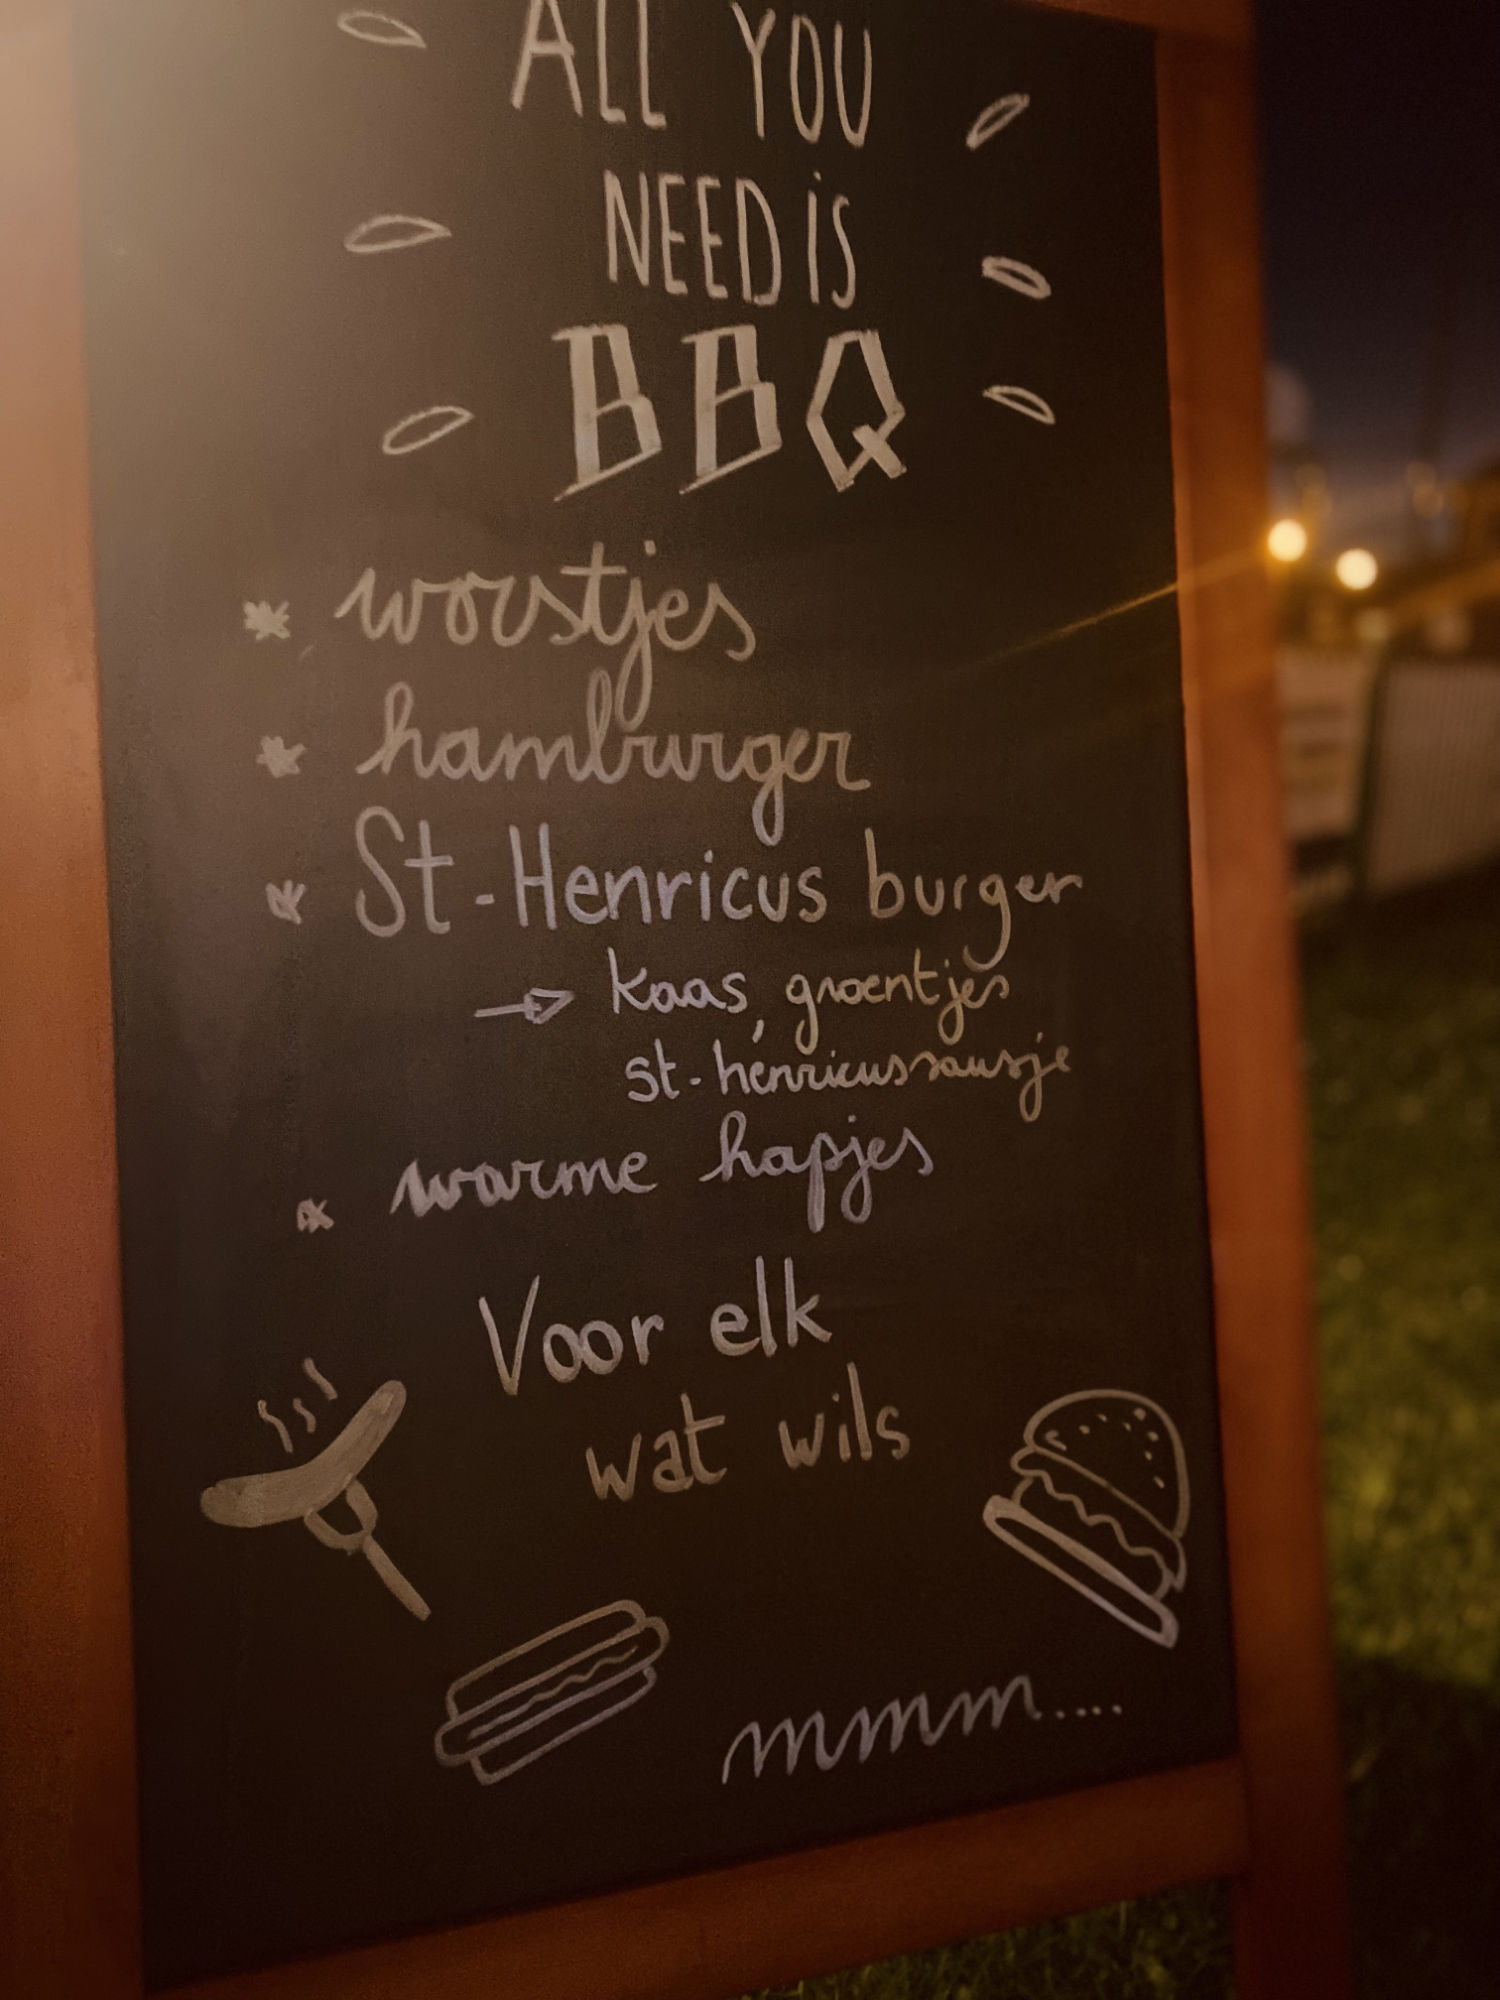 ALL YOU
NEED iS
BBQ
* worstjes
* hamburger
* St-Henricus burger
→ kaas, groentjes
st-henricussausje
* warme hapjes
Voor elk
wat wils
mmm....